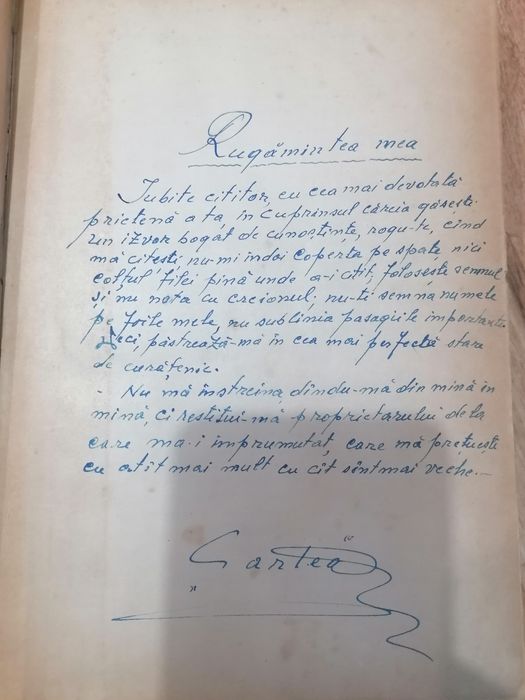 Rugămintea mea
Iubite cititor, eu cea mai devotată
prietenă a ta, în cuprinsul căreia găsești
un izvor bogat de cunoștințe, rogu-te, cînd
mă citești nu-mi îndoi coperta pe spate nici
colțul filei pînă unde a-i citit, folosește semnul
și nu nota cu creionul; nu-ți semna numele
pe foile mele, nu sublinia pasagiile importante.
Deci, păstrează-mă în cea mai perfectă stare
de curățenie.
- Nu mă înstreina, dîndu-mă din mînă în
mînă, ci restitui-mă proprietarului de la
care m-a-i împrumutat, care mă prețuește
cu atît mai mult cu cît sînt mai veche.-
"Cartea"